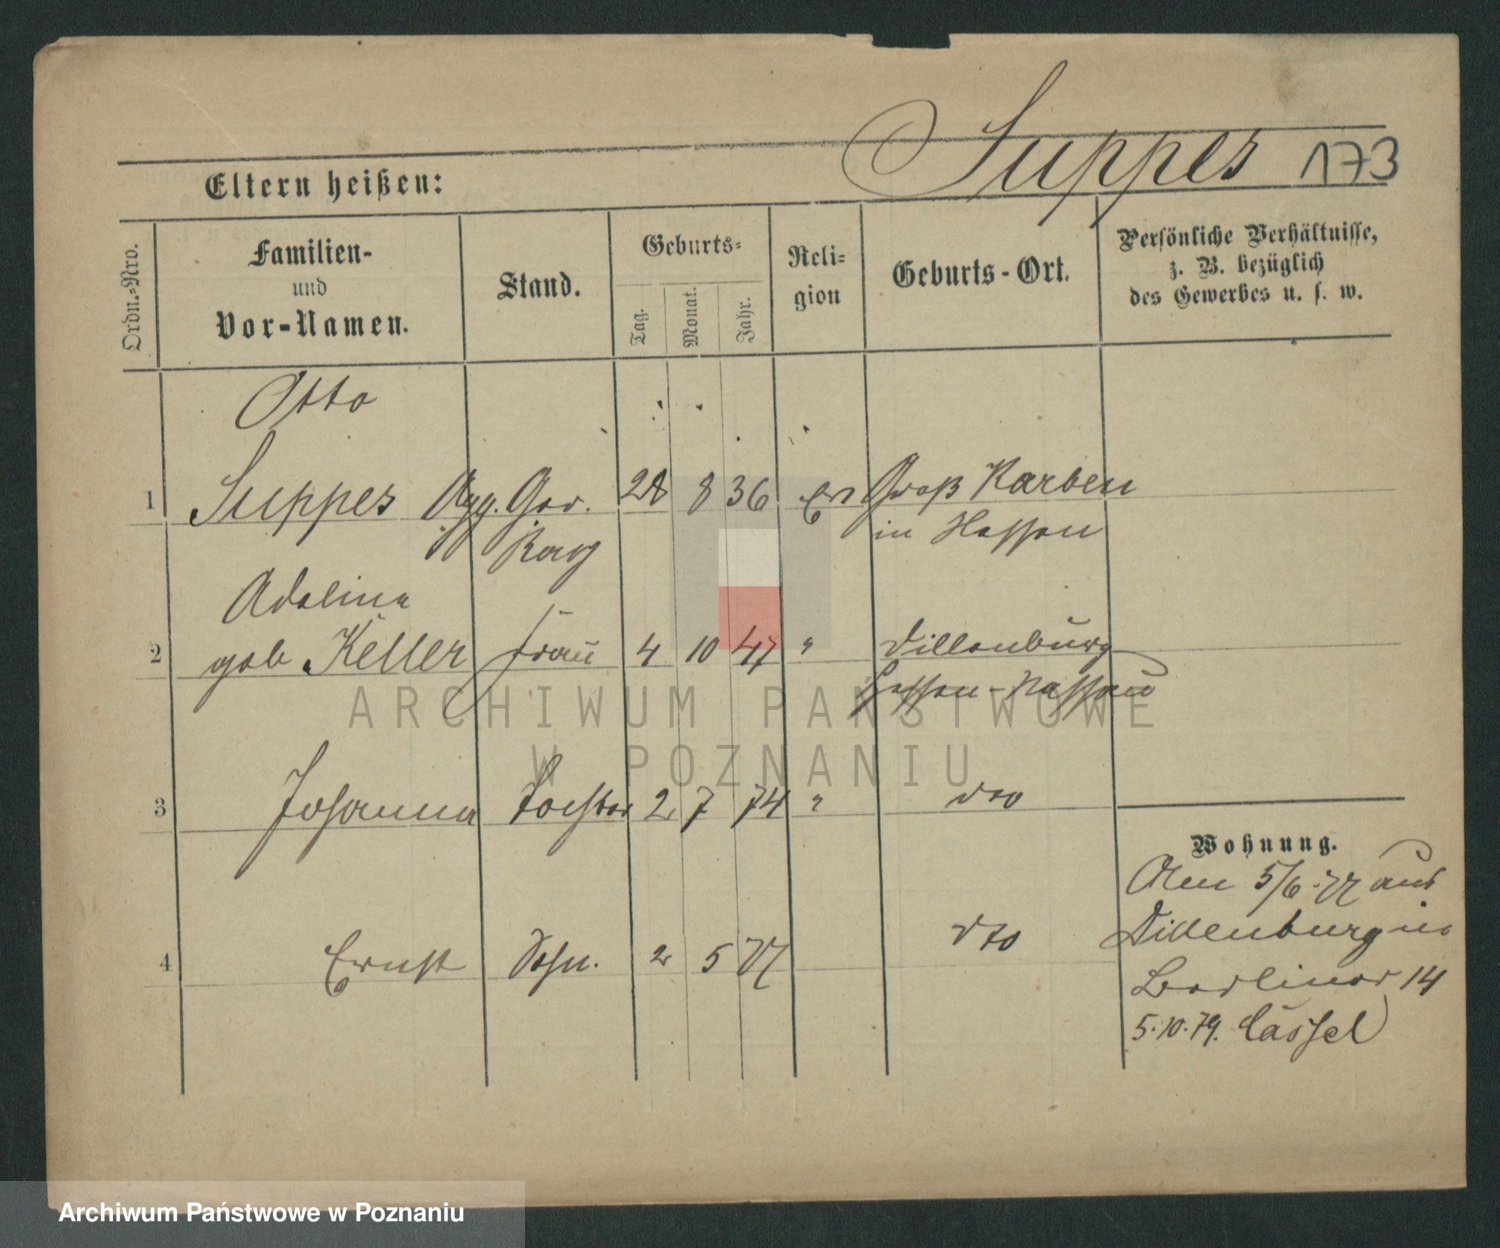 Suppes 173
Eltern heißen:
Ordn.-Nro.
Familien-
und
Vor-Namen.
Stand.
Geburts-
Tag.
Monat.
Jahr.
Reli-
gion
Geburts-Ort.
Persönliche Verhältnisse,
z. B. bezüglich
des Gewerbes u. s. w.
Otto
1 Suppes App. Ger. 28 8 36 Ev Groß Karben
in Hessen
Adeline
2 geb Keller Frau 4 10 47 " Dillenburg
Hessen-Nassau
3 Johanna Tochter 2 7 74 " dto
4 Ernst Sohn. 2 5 77 dto
Wohnung.
Am 5/6.77 aus
Dillenburg in
Berliner 14
5.10.79. Cassel
ARCHIWUM PAŃSTWOWE
W POZNANIU
Archiwum Państwowe w Poznaniu